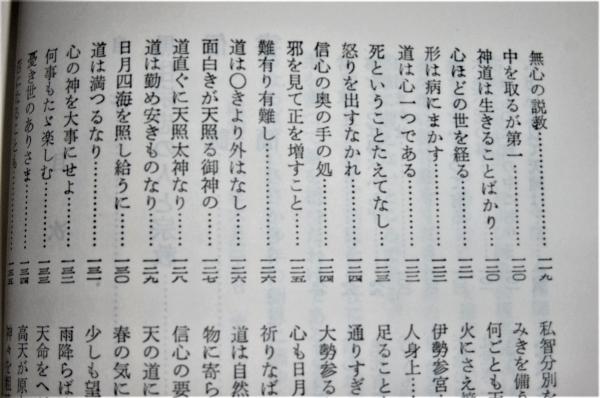 無心の説教……一一九
中を取るが第一……一二〇
神道は生きることばかり……一二〇
心ほどの世を経る……一二一
形は病にまかす……一二二
道は心一つである……一二二
死ということたえてなし……一二三
怒りを出すなかれ……一二四
信心の奥の手の処……一二四
邪を見て正を増すこと……一二五
難有り有難し……一二六
道は〇きより外はなし……一二六
面白きが天照る御神の……一二七
道直ぐに天照太神なり……一二八
道は勤め安きものなり……一二九
日月四海を照し給うに……一三〇
道は満つるなり……一三一
心の神を大事にせよ……一三二
何事もたゞ楽しむ……一三三
憂き世のありさま……一三四
一三五
私智分別を
みきを備う
何ごとも天
火にさえ
伊勢参宮
人身上
足ること
通りすぎ
大勢参る
心も日月
祈りなば
道は自然
物に寄ら
信心の要
天の道に
春の気に
少しも望
雨降らば
天命をへ
高天が原
神々を